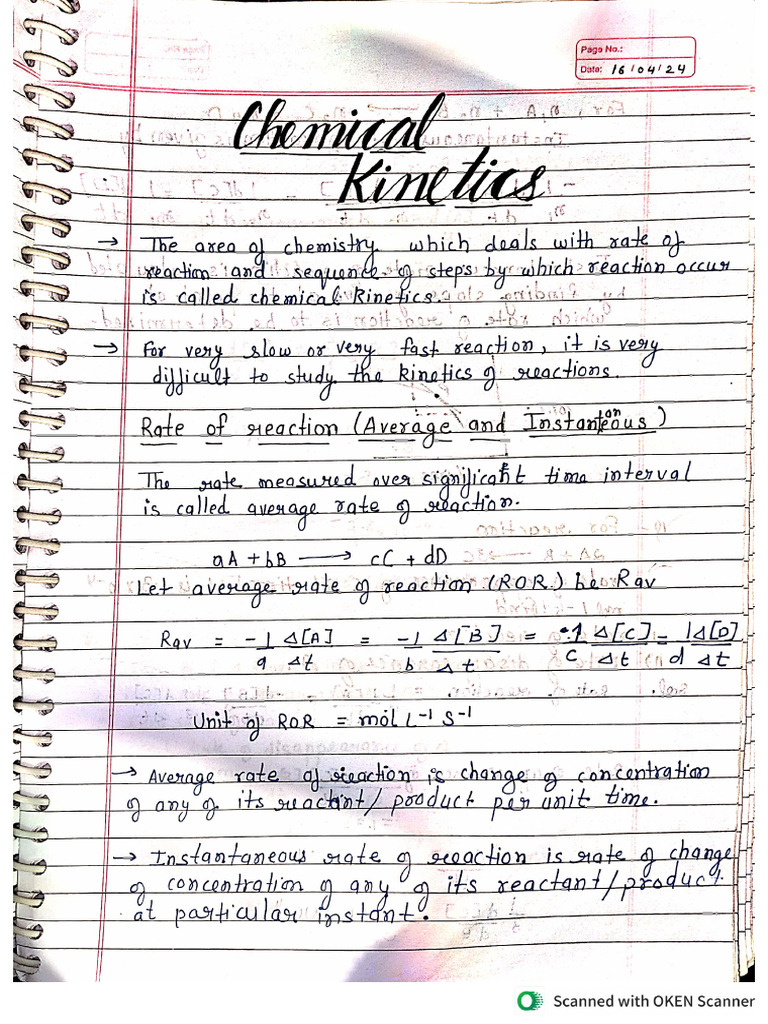 Page No.:
Date: 16/04/24
Chemical
Kinetics
→ The area of chemistry which deals with rate of
reaction and sequence of steps by which reaction occur
is called chemical Kinetics.
→ For very slow or very fast reaction, it is very
difficult to study the kinetics of reactions.
Rate of reaction (Average and Instantaneous)
The rate measured over significant time interval
is called average rate of reaction.
aA + bB ⟶ cC + dD
Let average rate of reaction (ROR) be Rav
Rav = -1/a Δ[A]/Δt = -1/b Δ[B]/Δt = 1/c Δ[C]/Δt = 1/d Δ[D]/Δt
Unit of ROR = mol L⁻¹ S⁻¹
→ Average rate of reaction is change of concentration
of any of its reactant/product per unit time.
→ Instantaneous rate of reaction is rate of change
of concentration of any of its reactant/product
at particular instant.
Scanned with OKEN Scanner